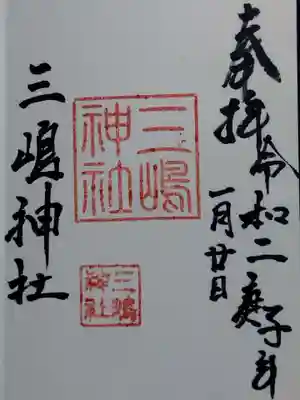 奉拝 令和二庚子年
一月廿日
三嶋神社
三嶋神社
三嶋神社